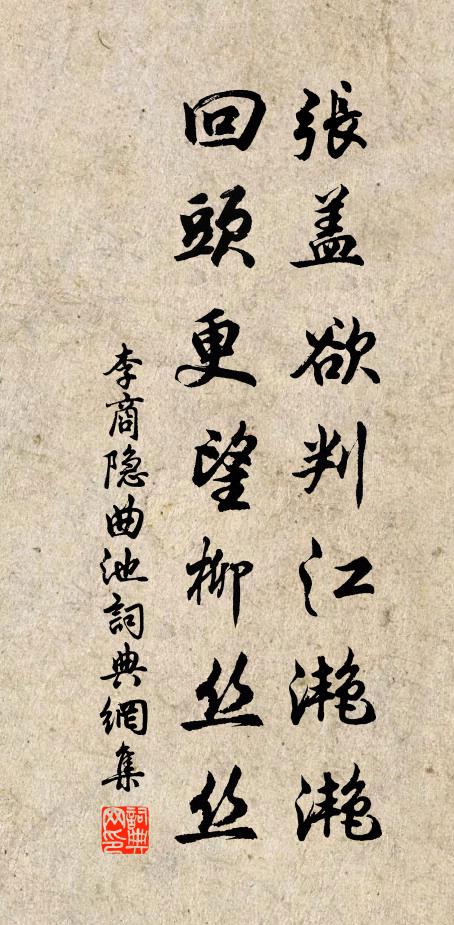 張蓋欲判江灔灔
回頭更望柳丝丝
李商隐曲池詞典網集
詞典网印